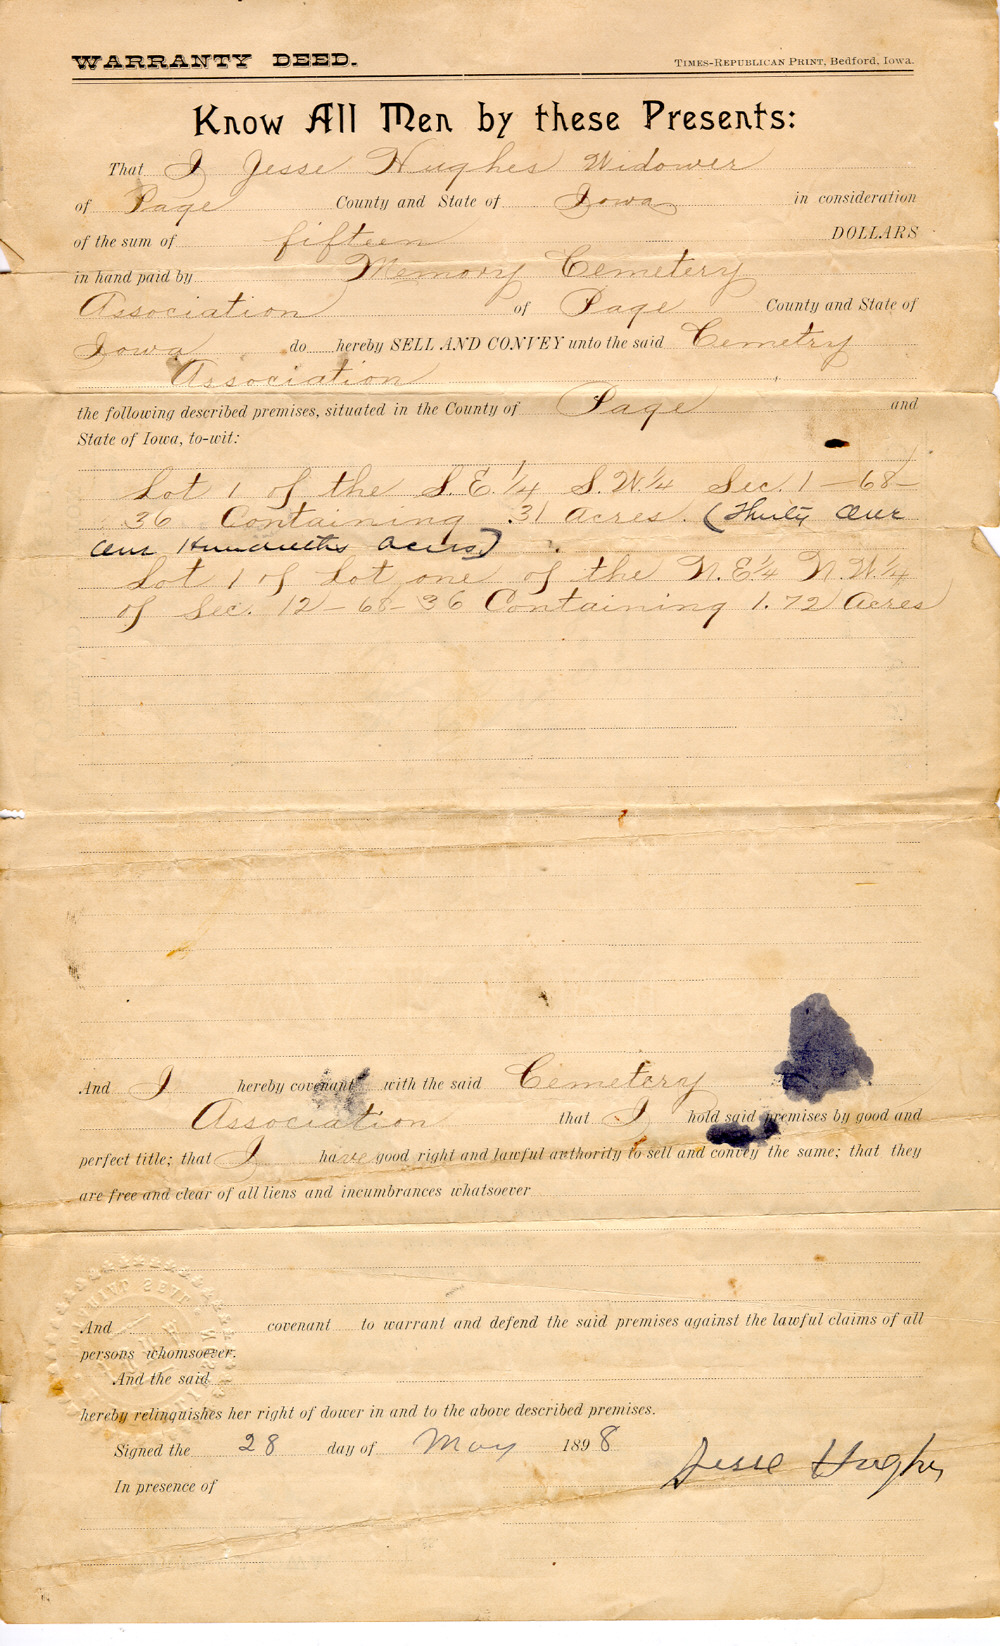 WARRANTY DEED. TIMES-REPUBLICAN PRINT, Bedford, Iowa.
Know All Men by these Presents:
That I Jesse Hughes Widower
of Page County and State of Iowa in consideration
of the sum of fifteen DOLLARS
in hand paid by Memory Cemetery
Association of Page County and State of
Iowa do hereby SELL AND CONVEY unto the said Cemetry
Association
the following described premises, situated in the County of Page and
State of Iowa, to-wit:
Lot 1 of the S.E. 1/4 S.W. 1/4 Sec. 1-68-
36 Containing .31 Acres. (Thirty One
One Hundredths acres)
Lot 1 of Lot one of the N.E 1/4 N.W. 1/4
of Sec. 12-68-36 Containing 1.72 Acres
And I hereby covenant with the said Cemetery
Association that I hold said premises by good and
perfect title; that I have good right and lawful authority to sell and convey the same; that they
are free and clear of all liens and incumbrances whatsoever
And covenant to warrant and defend the said premises against the lawful claims of all
persons whomsoever.
And the said
hereby relinquishes her right of dower in and to the above described premises.
Signed the 28 day of May 1898 Jesse Hughes
In presence of